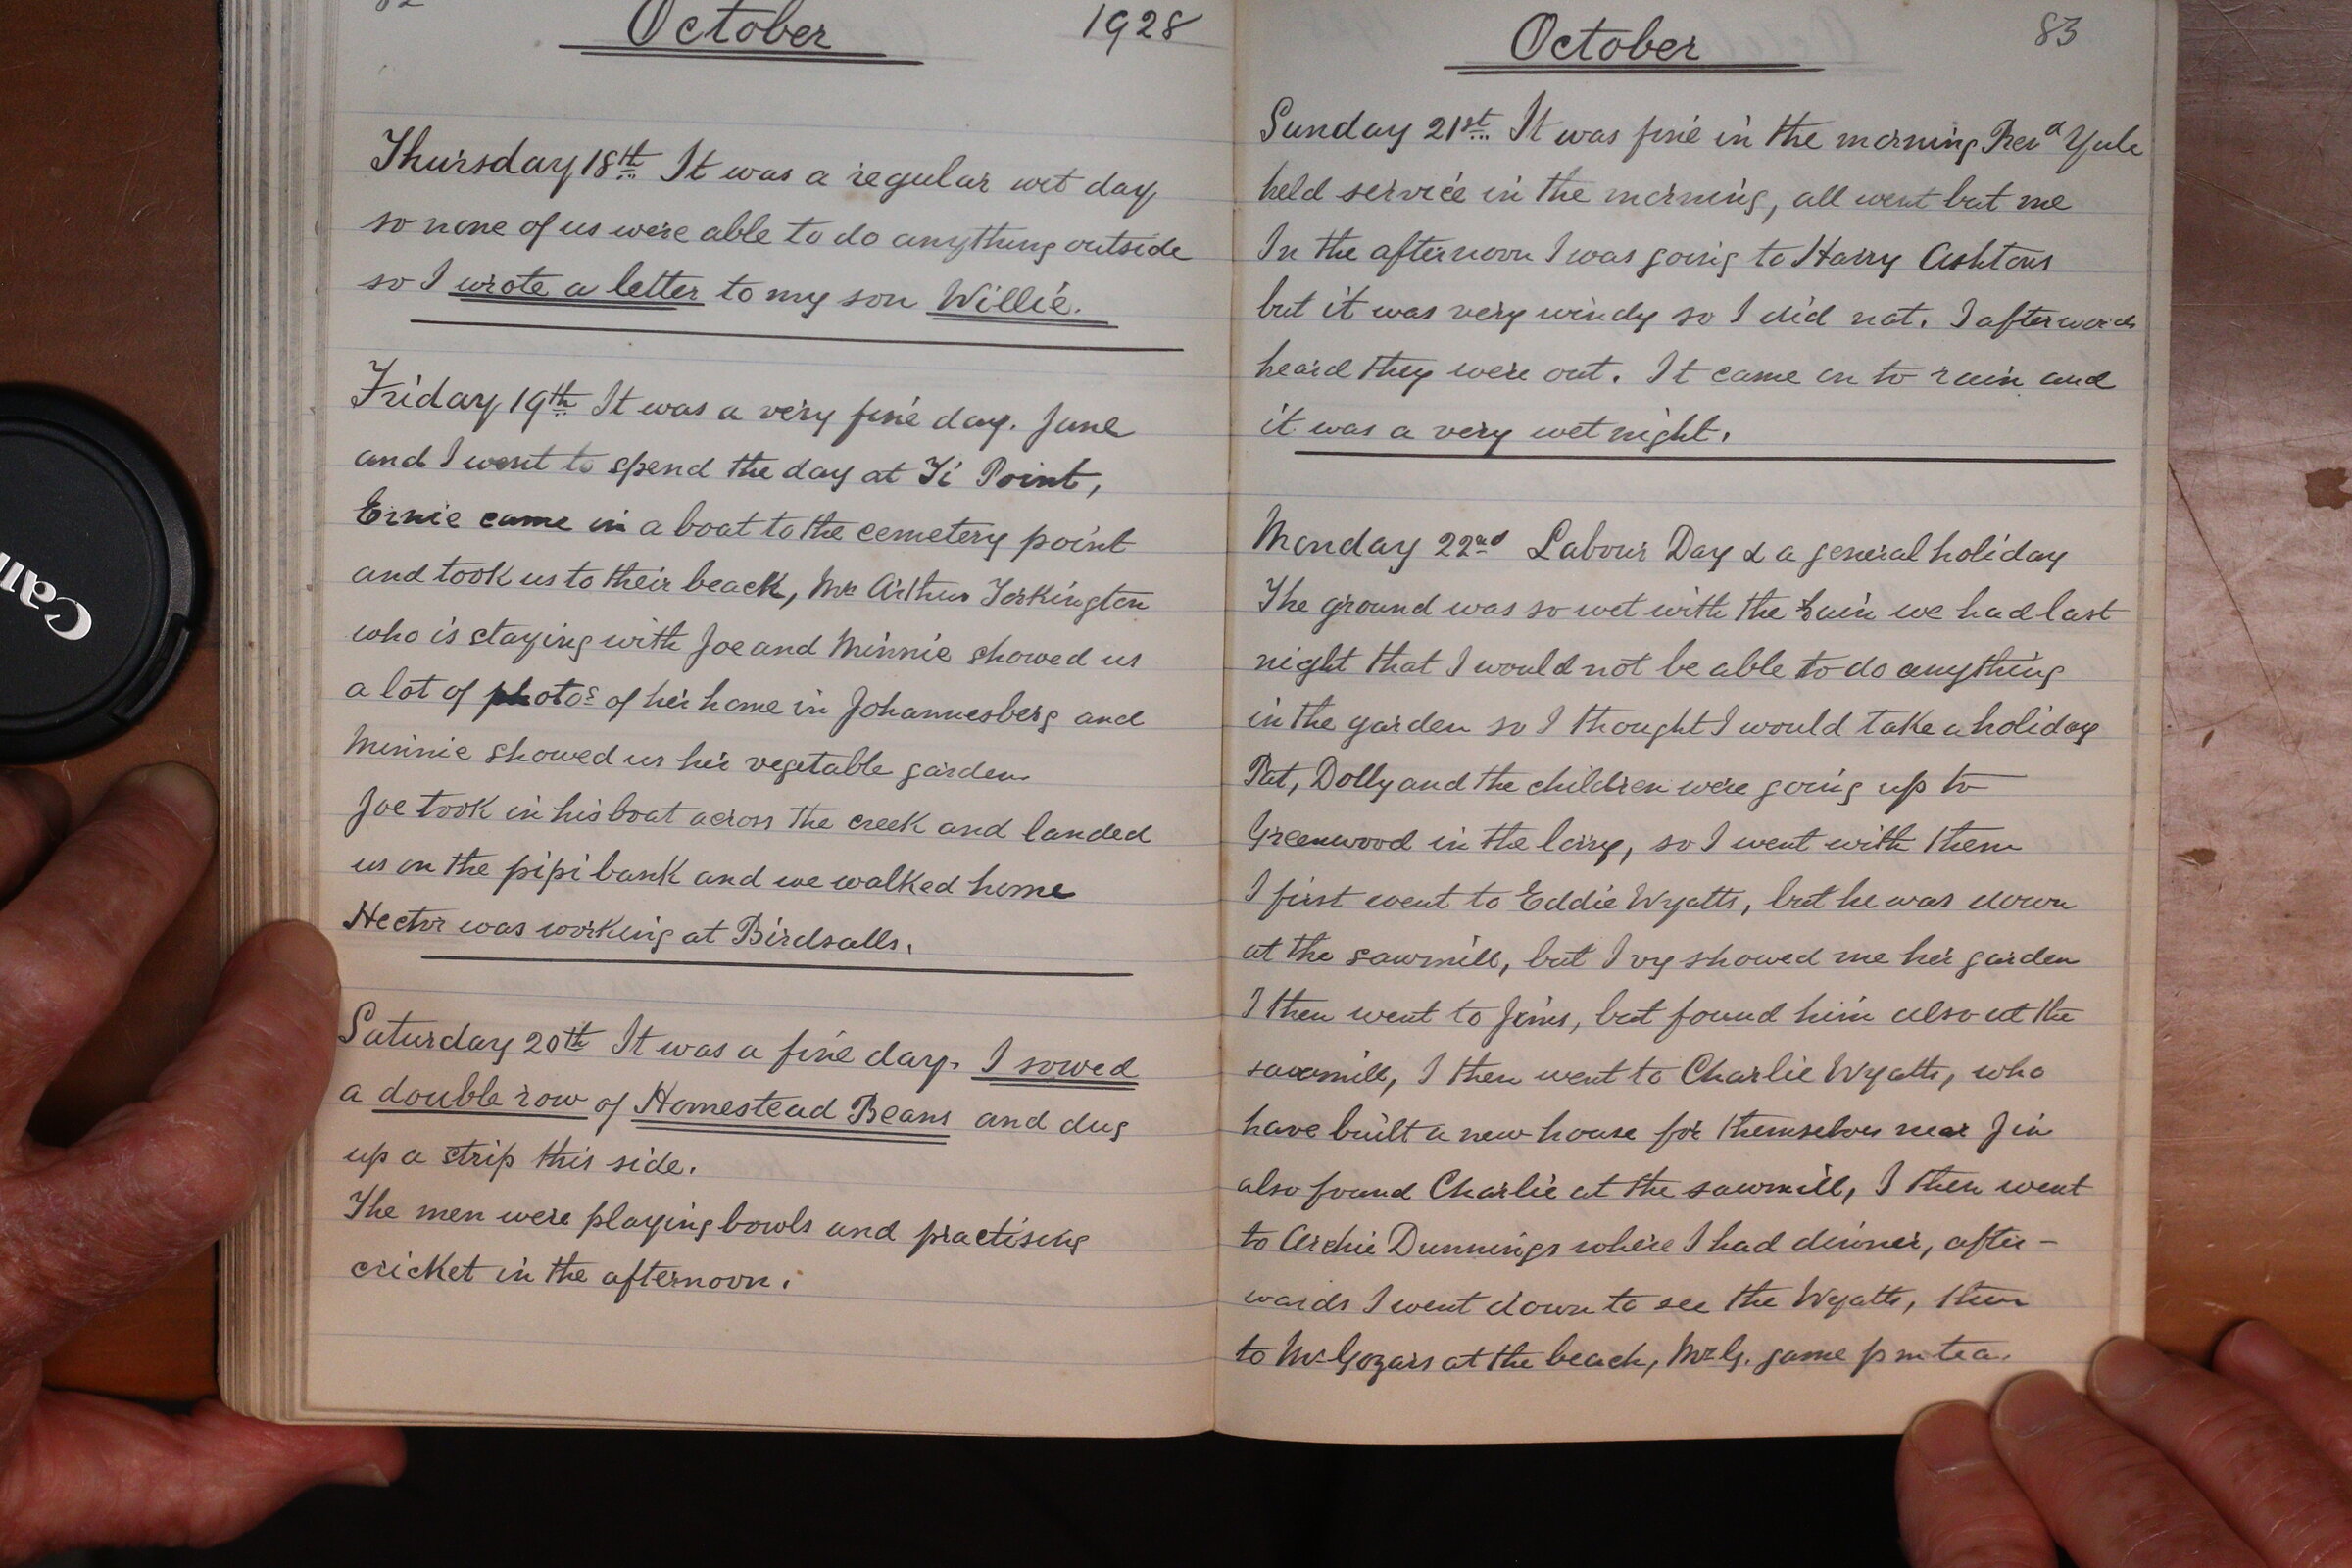 82
October 1928
Thursday 18th It was a regular wet day,
so none of us were able to do anything outside
so I wrote a letter to my son Willie.
Friday 19th It was a very fine day. June
and I went to spend the day at Ti Point,
Ernie came in a boat to the cemetery point
and took us to their beach, Mrs Arthur Torkington
who is staying with Joe and Minnie showed us
a lot of photos of her home in Johannesberg and
Minnie showed us her vegetable garden
Joe took in his boat across the creek and landed
us on the pipi bank and we walked home
Hector was working at Birdsalls.
Saturday 20th It was a fine day. I sowed
a double row of Homestead Beans and dug
up a strip this side.
The men were playing bowls and practising
cricket in the afternoon.
October 83
Sunday 21st It was fine in the morning Revd Yule
held service in the morning, all went but me
In the afternoon I was going to Harry Ashtons
but it was very windy so I did not. I afterwards
heard they were out. It came on to rain and
it was a very wet night.
Monday 22nd Labour Day & a general holiday
The ground was so wet with the rain we had last
night that I would not be able to do anything
in the garden so I thought I would take a holiday
Pat, Dolly and the children were going up to
Greenwood in the lorry, so I went with them
I first went to Eddie Wyatts, but he was down
at the sawmill, but Ivy showed me her garden
I then went to Jims, but found him also at the
sawmill, I then went to Charlie Wyatts, who
have built a new house for themselves near Jim
also found Charlie at the sawmill, I then went
to Archie Dunnings where I had dinner, after-
wards I went down to see the Wyatts, then
to at the beach, Mr G. tea.
Can